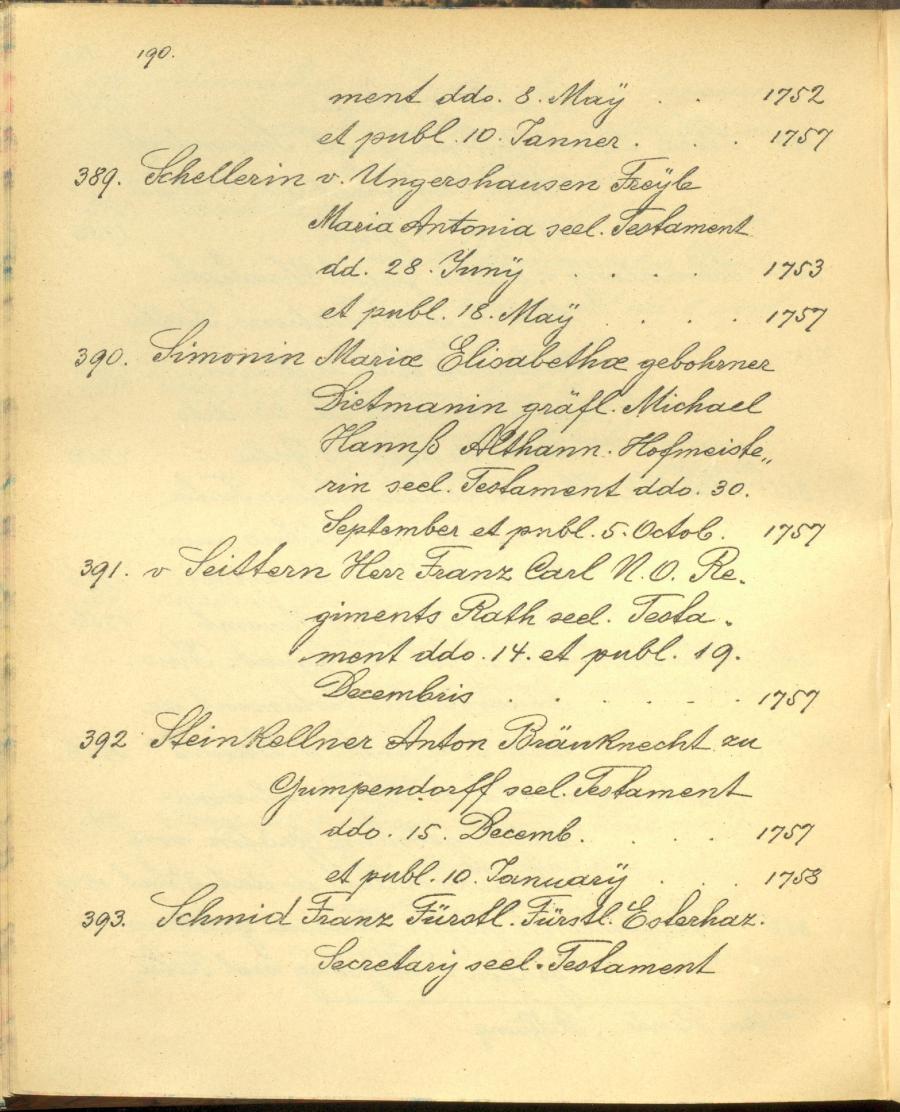 190.
ment ddo. 8. Maÿ . . 1752
et publ. 10. Janner . . . 1757
389. Schellerin v. Ungershausen Freÿle
Maria Antonia seel. Testament
dd. 28. Junÿ . . . . 1753
et publ. 18. Maÿ . . . . 1757
390. Simonin Mariæ Elisabethæ gebohrner
Dietmanin gräfl. Michael
Hannß Althann. Hofmeiste„
rin seel. Testament ddo. 30.
September et publ. 5. Octob. 1757
391. v Seittern Herr Franz Carl N. O. Re-
giments Rath seel. Testa-
ment ddo. 14. et publ. 19.
Decembris . . . . . . 1757
392 Steinkellner Anton Bräuknecht zu
Gumpendorff seel. Testament
ddo. 15. Decemb. . . . 1757
et publ. 10. Januarÿ . . . 1758
393. Schmid Franz Fürstl. Fürstl. Esterhaz.
Secretarÿ seel. Testament